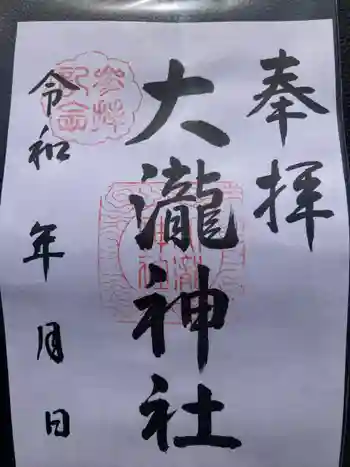 奉拝
大瀧神社
令和 年 月 日
参拝
記念